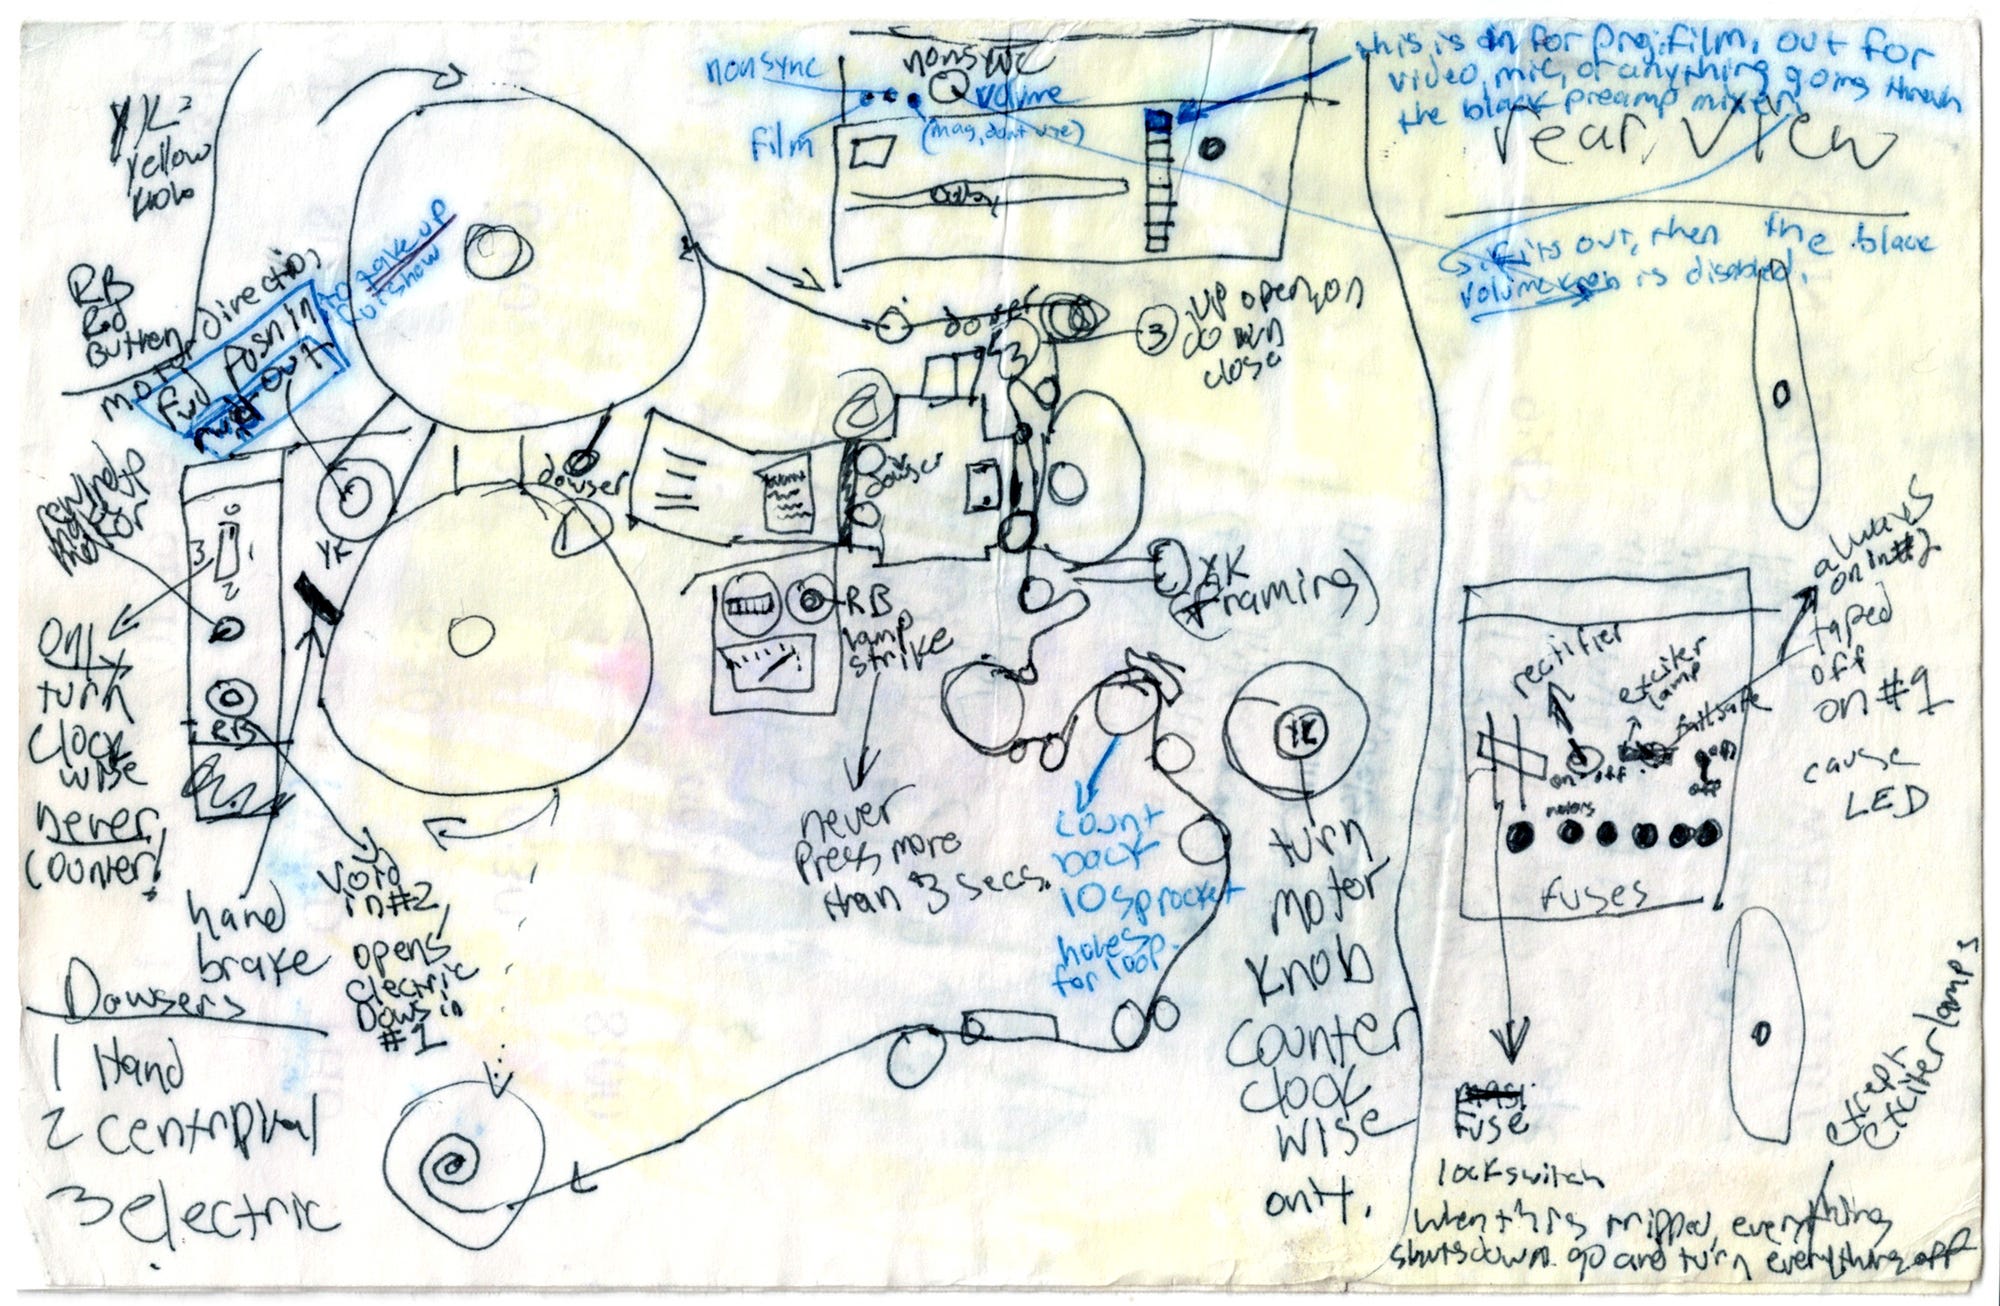 YK=
Yellow
Knob
RB
Red
Button
motor direction
Fwd push in
out
to take up
nonsync
film
nonsync
volume
(mag, dont use)
Dolby
this is in for proj. film, out for
video, mic, or anything going through
the black preamp mixer.
rear view
if its out, then the black
volume knob is disabled.
dowser
3
3
up open/on
down
close
2
dowser
dowser
1
YK
0
3
1
2
RB
motor
only
turn
clock
wise
never
counter!
hand
brake
void
in #2,
opens
electric
Dows in
#1
RB
lamp
strike
never
Press more
than 3 secs.
YK
(framing)
count
back
10 sprocket
holes
for loop
YK
turn
motor
knob
counter
clock
wise
only.
Dowsers
1 Hand
2 centripital
3 electric
rectifier
exciter
lamp
failsafe
on off
on
off
motors
fuses
always
on in #2
taped
off
on #1
cause
LED
Fuse
lock switch
when this is tripped, everything
shuts down. go and turn everything off
except
exciter lamps